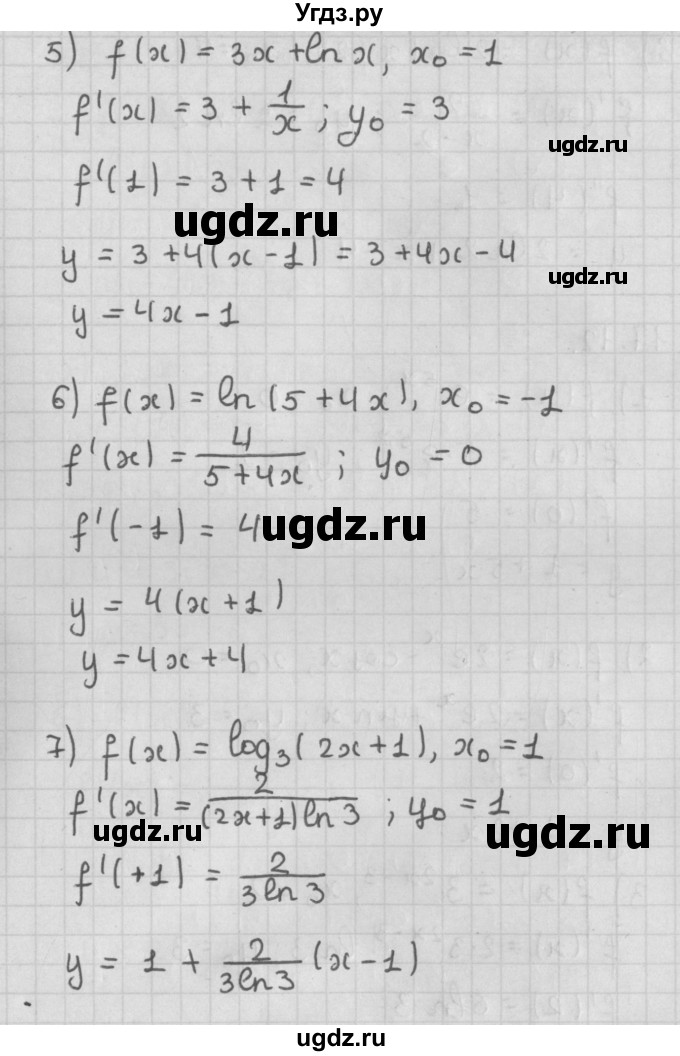 Угдз.ру
5) f(x) = 3x + ln x, x₀ = 1
f'(x) = 3 + 1/x ; y₀ = 3
ugdz.ru
f'(1) = 3 + 1 = 4
ugdz.ru
y = 3 + 4(x - 1) = 3 + 4x - 4
ugdz.ru
y = 4x - 1
6) f(x) = ln (5 + 4x), x₀ = -1
f'(x) = 4/(5 + 4x) ; y₀ = 0
f'(-1) = 4
ugdz.ru
y = 4(x + 1)
y = 4x + 4
7) f(x) = log₃(2x + 1), x₀ = 1
f'(x) = 2/((2x + 1) ln 3) ; y₀ = 1
ugdz.ru
ugdz.ru
f'(+1) = 2/(3 ln 3)
y = 1 + 2/(3 ln 3) (x - 1)
ugdz.ru